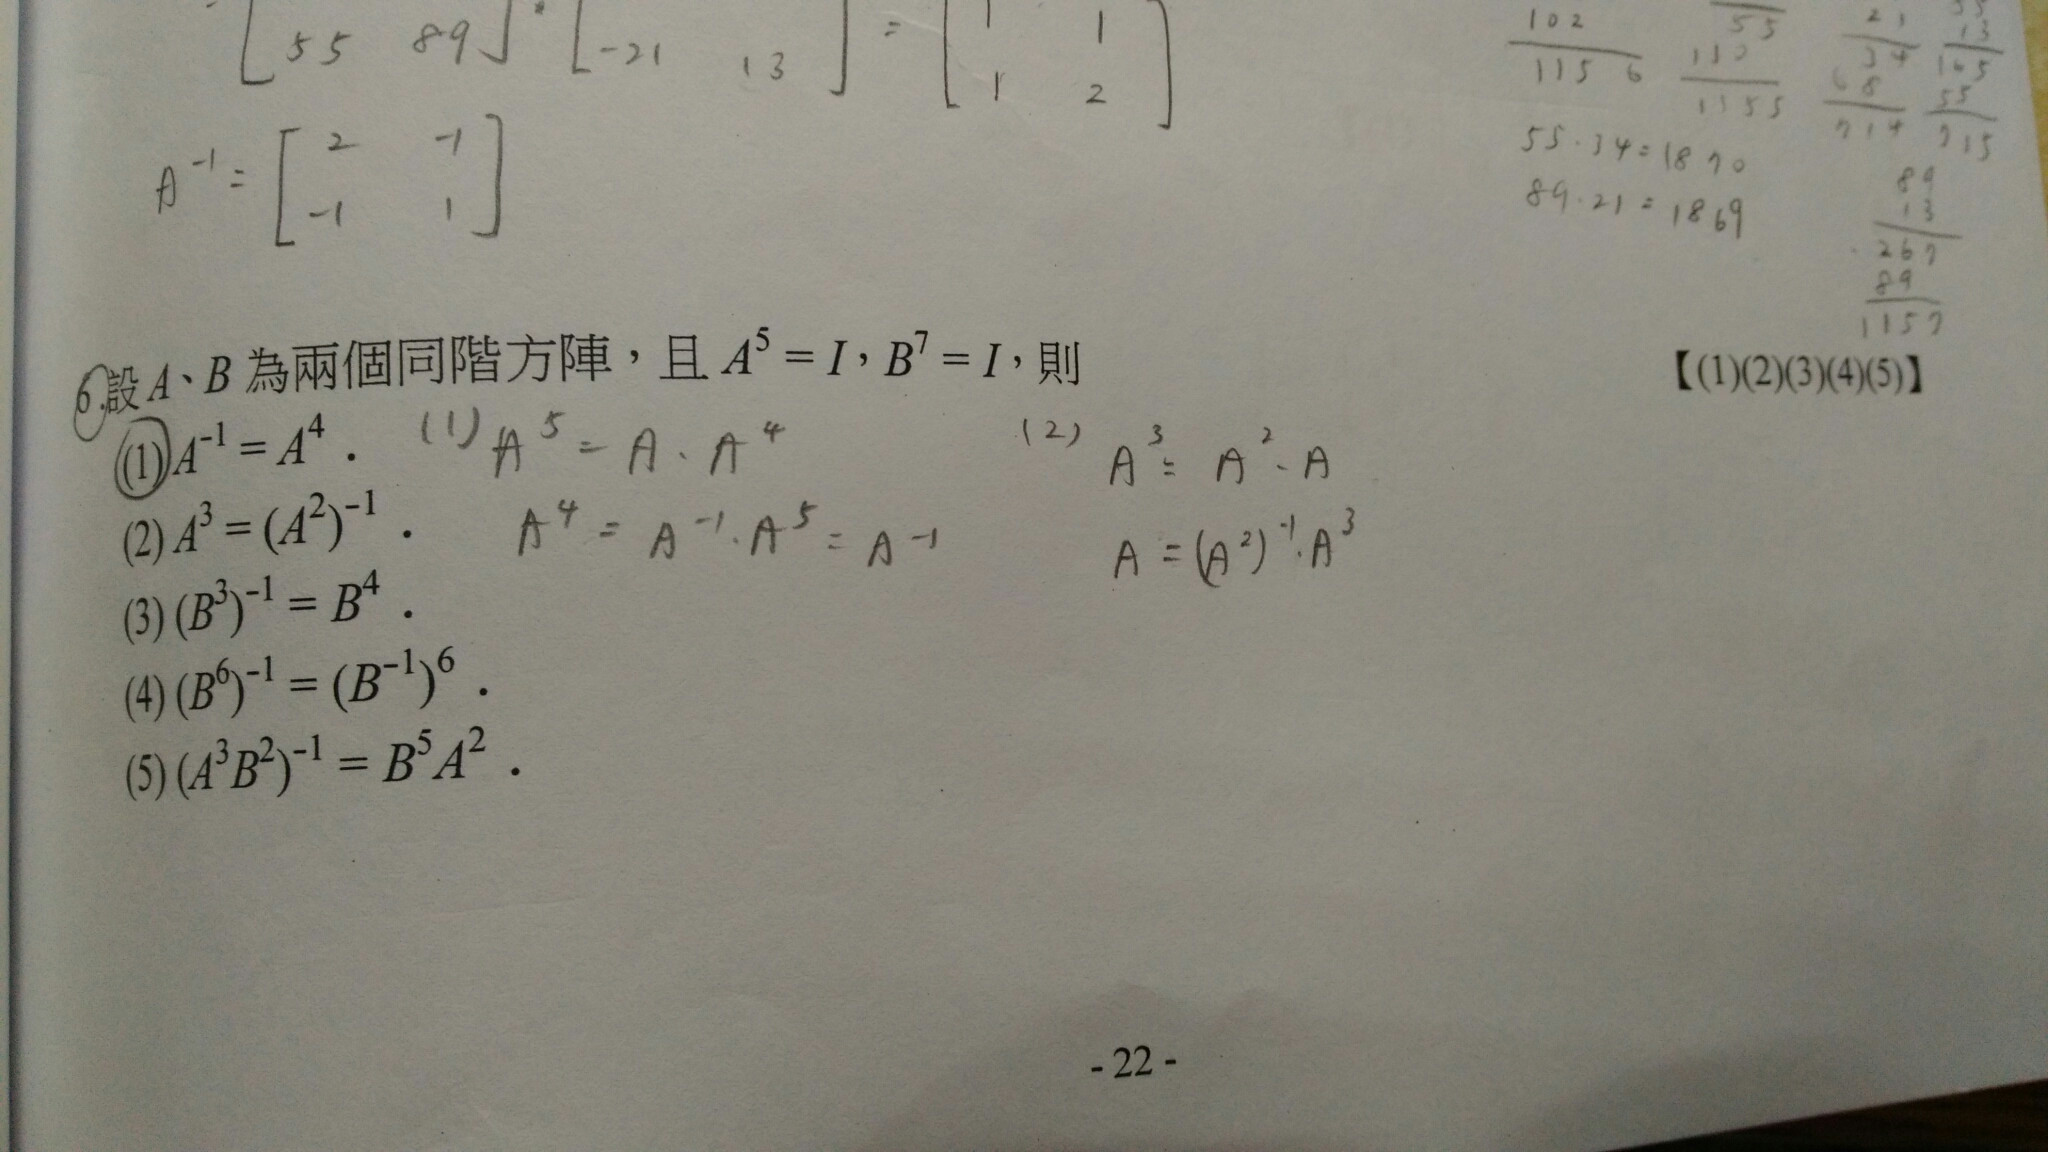 55 89 -21 13 = 1 1
1 2
A⁻¹ = [2 -1
-1 1]
102
1156
55
1155
21
34
68
714
13
165
55
715
55·34=1870
89·21=1869
89
13
267
89
1157
6.設A、B為兩個同階方陣,且A⁵ = I,B⁷ = I,則 【(1)(2)(3)(4)(5)】
(1) A⁻¹ = A⁴. (1) A⁵ = A·A⁴ (2) A³ = A²·A
(2) A³ = (A²)⁻¹. A⁴ = A⁻¹·A⁵ = A⁻¹ A = (A²)⁻¹·A³
(3) (B³)⁻¹ = B⁴.
(4) (B⁶)⁻¹ = (B⁻¹)⁶.
(5) (A³B²)⁻¹ = B⁵A².
- 22 -